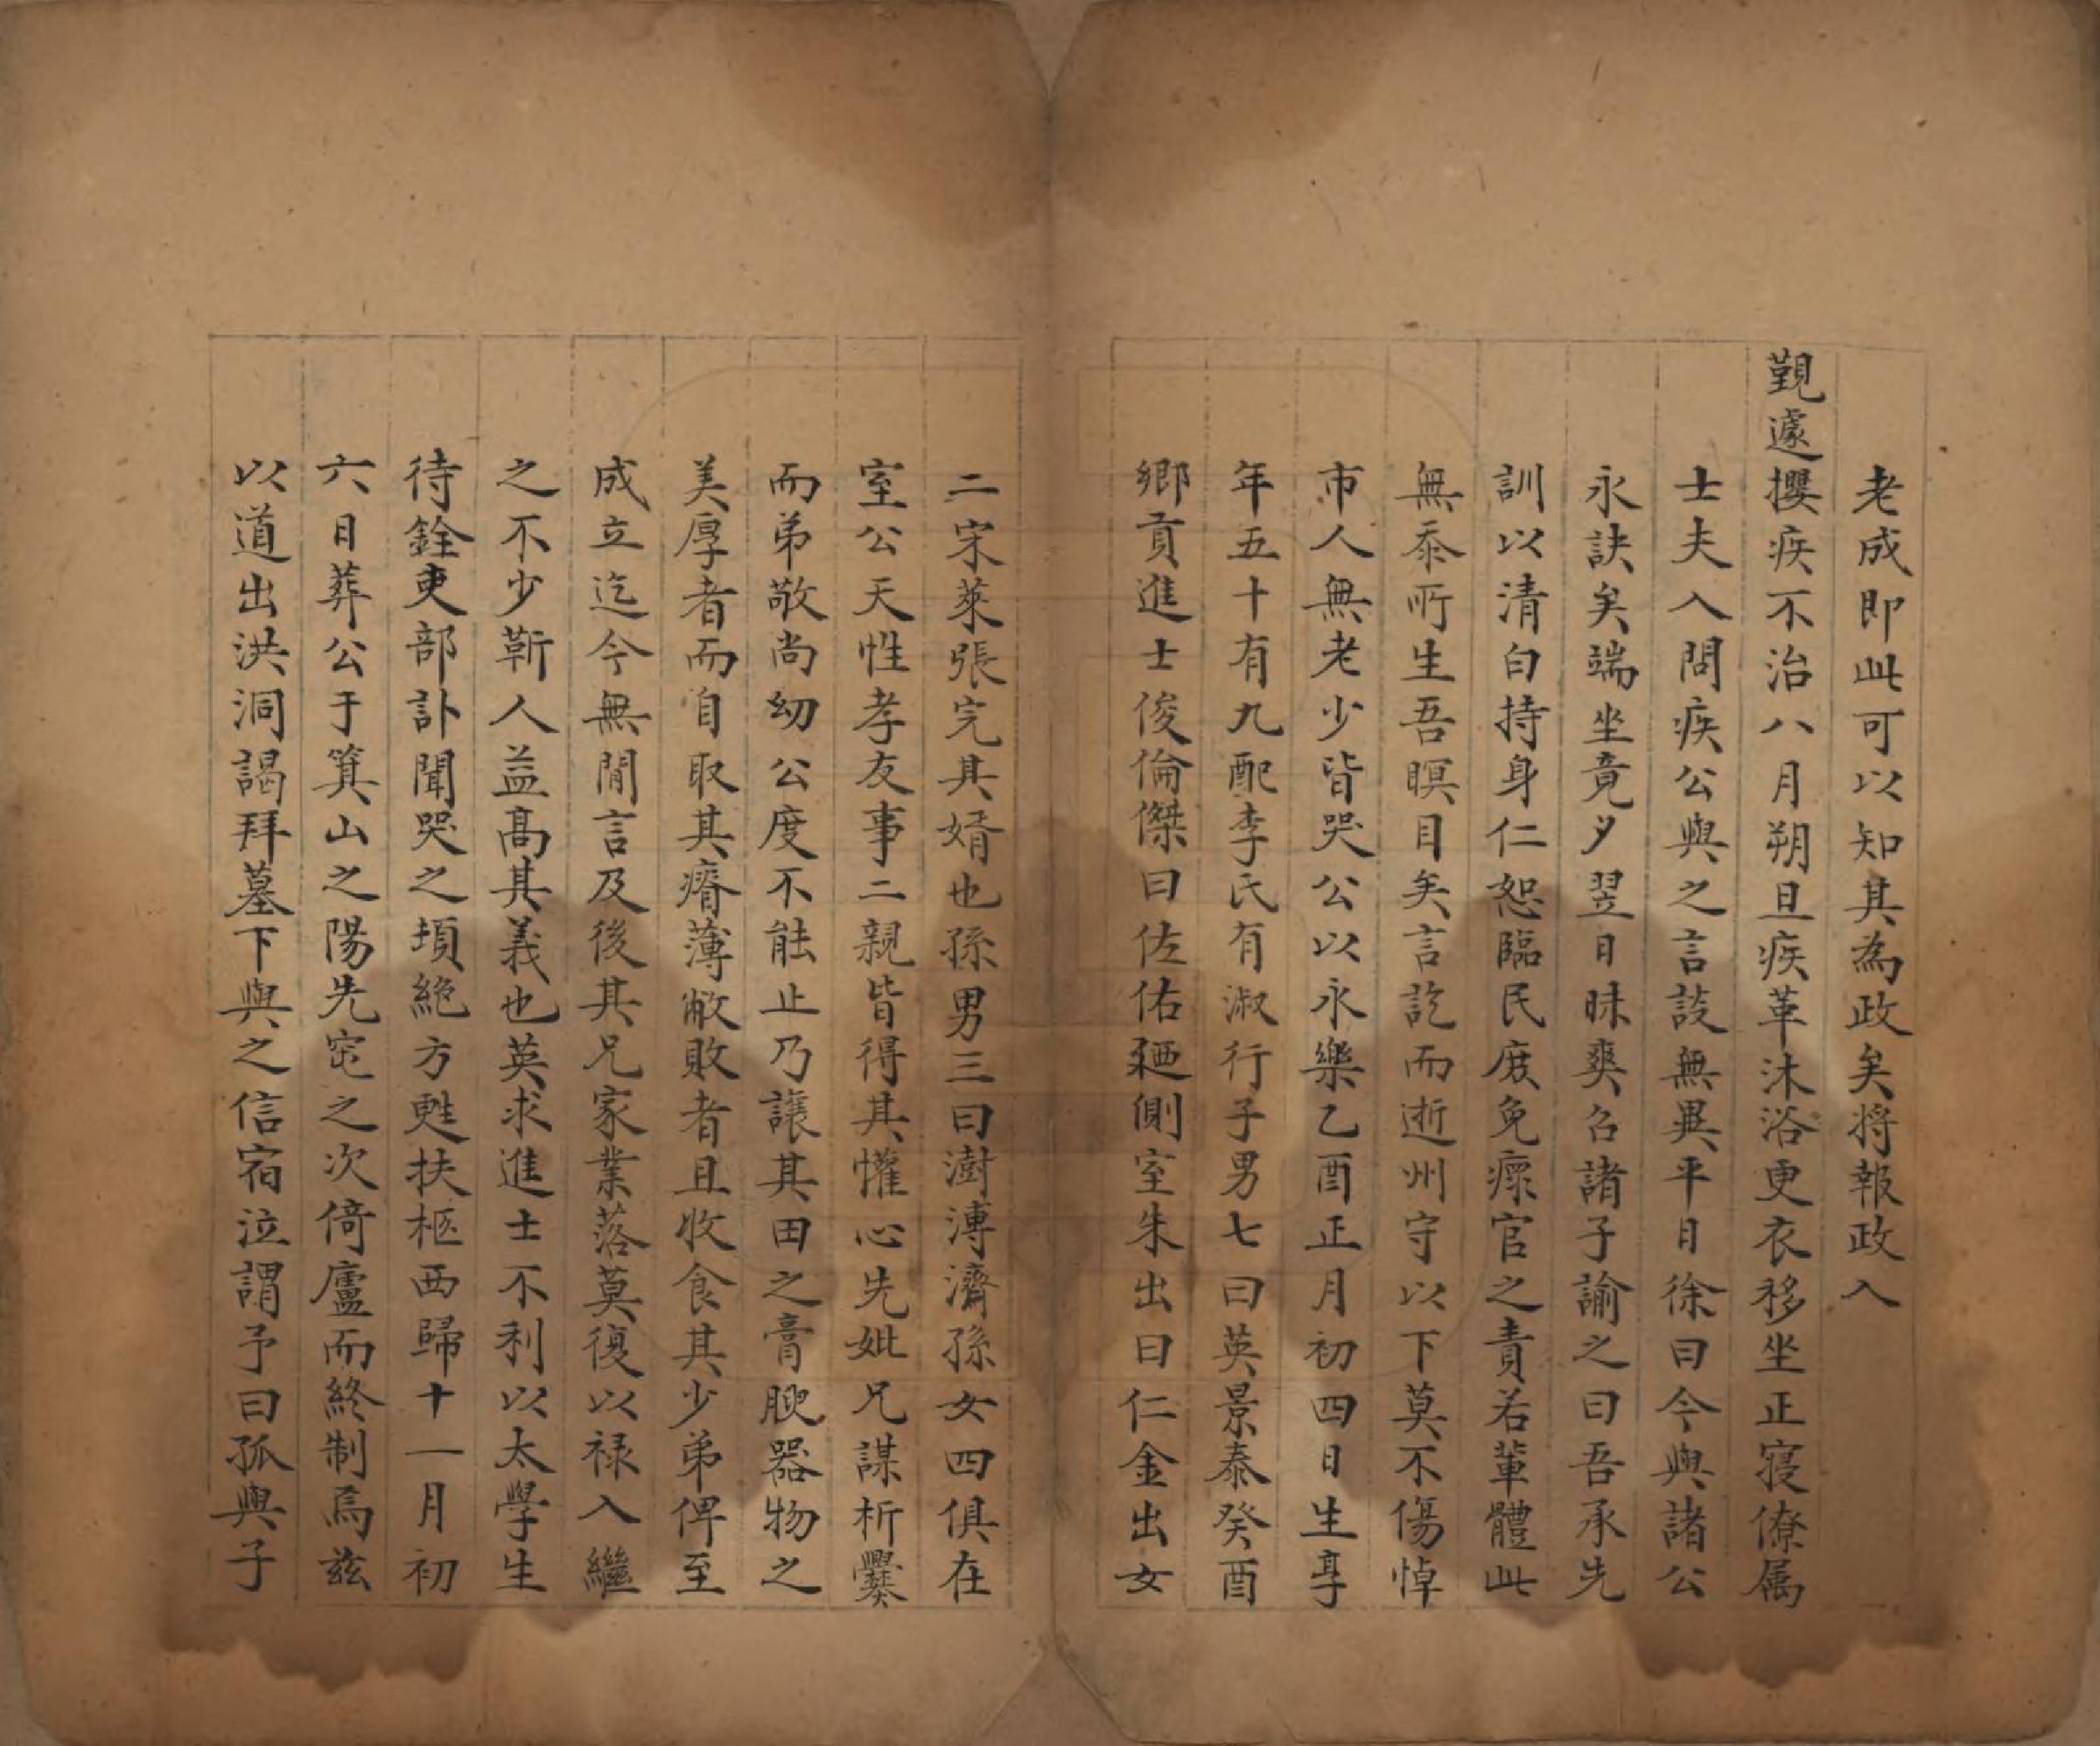 老成即此可以知其為政矣將報政入
覲遽攖疾不治八月朔旦疾革沐浴更衣移坐正寢僚属
士夫入問疾公與之言談無異平日徐曰今與諸公
永訣矣端坐竟夕翌日昧爽召諸子諭之曰吾承先
訓以清白持身仁恕臨民庻免瘝官之責若輩體此
無忝所生吾瞑目矣言訖而逝州守以下莫不傷悼
市人無老少皆哭公以永樂乙酉正月初四日生享
年五十有九配李氏有淑行子男七曰英景泰癸酉
鄉貢進士俊倫傑曰佐佑廼側室朱出曰仁金出女
二宋萊張完其婿也孫男三曰澍漙濟孫女四俱在
室公天性孝友事二親皆得其懽心先妣兄謀析爨
而弟敬尚幼公度不能止乃讓其田之膏腴器物之
美厚者而自取其瘠薄敝敗者且收食其少弟俾至
成立迄今無間言及後其兄家業落莫復以禄入繼
之不少靳人益高其義也英求進士不利以太學生
待銓吏部訃聞哭之頓絕方甦扶柩西歸十一月初
六日葬公于箕山之陽先窆之次倚廬而終制焉兹
以道出洪洞謁拜墓下與之信宿泣謂予曰孤與子